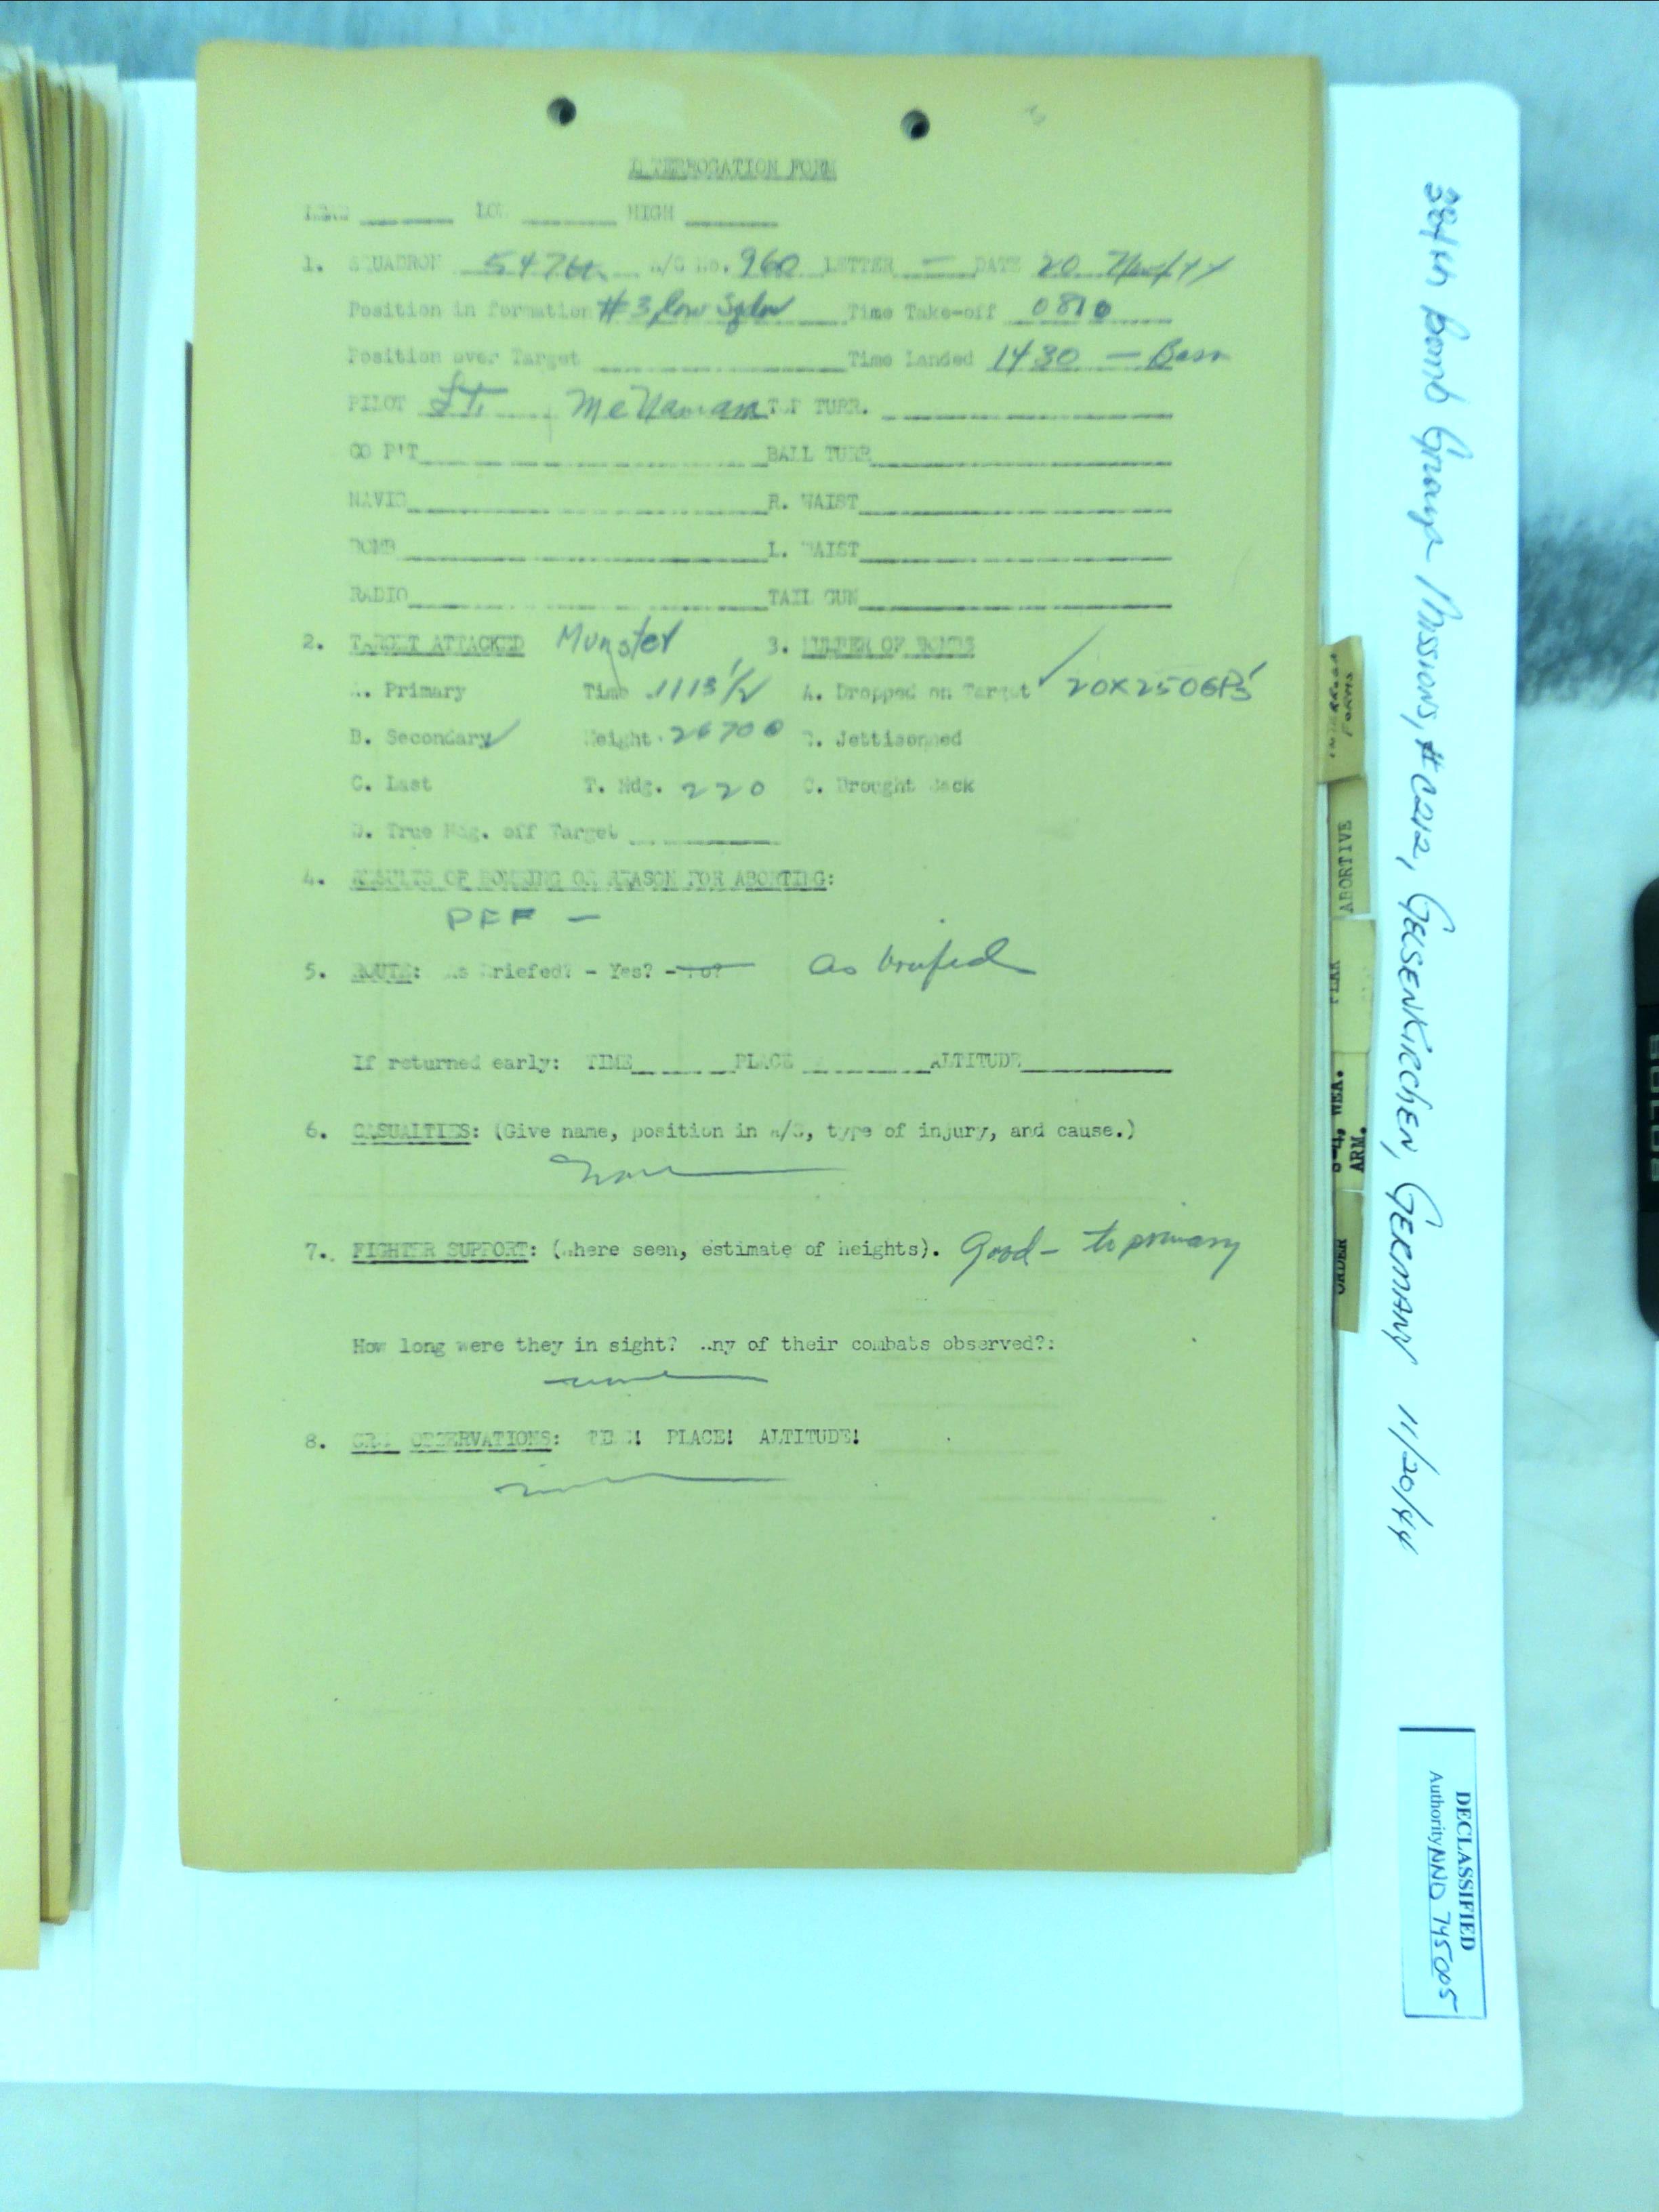 INTERROGATION FORM
LEAD ____ LOW ____ HIGH ____
1. SQUADRON 547th A/C No. 960 LETTER — DATE 20 Nov/44
Position in formation #3, Low Sqdn Time Take-off 0810
Position over Target ____ Time Landed 1430 — Base
PILOT Lt. TOP TURR. ____
CO P'T ____ BALL TURR ____
NAVIG ____ R. WAIST ____
BOMB ____ L. WAIST ____
RADIO ____ TAIL GUN ____
2. TARGET ATTACKED Munster 3. NUMBER OF BOMBS
A. Primary Time 1113 1/2 A. Dropped on Target ✓ 20X250GPs
B. Secondary ✓ Height 26700 B. Jettisonned
C. Last T. Hdg. 220 C. Brought Back
D. True Hdg. off Target ____
4. RESULTS OF BOMBING OR REASON FOR ABORTING:
PFF —
5. ROUTE: As Briefed? - Yes? - No? As briefed
If returned early: TIME ____ PLACE ____ ALTITUDE ____
6. CASUALTIES: (Give name, position in A/C, type of injury, and cause.)
None
7. FIGHTER SUPPORT: (Where seen, estimate of heights). Good - to primary
How long were they in sight? Any of their combats observed?:
none
8. OBSERVATIONS: TIME! PLACE! ALTITUDE!
INTERROG FORMS
ABORTIVE
FLAK
S-4, WEA.
ARM.
ORDER
384th Bomb Group Missions, #C212, GELSENKIRCHEN, GERMANY 11/20/44
DECLASSIFIED
Authority NND 745005